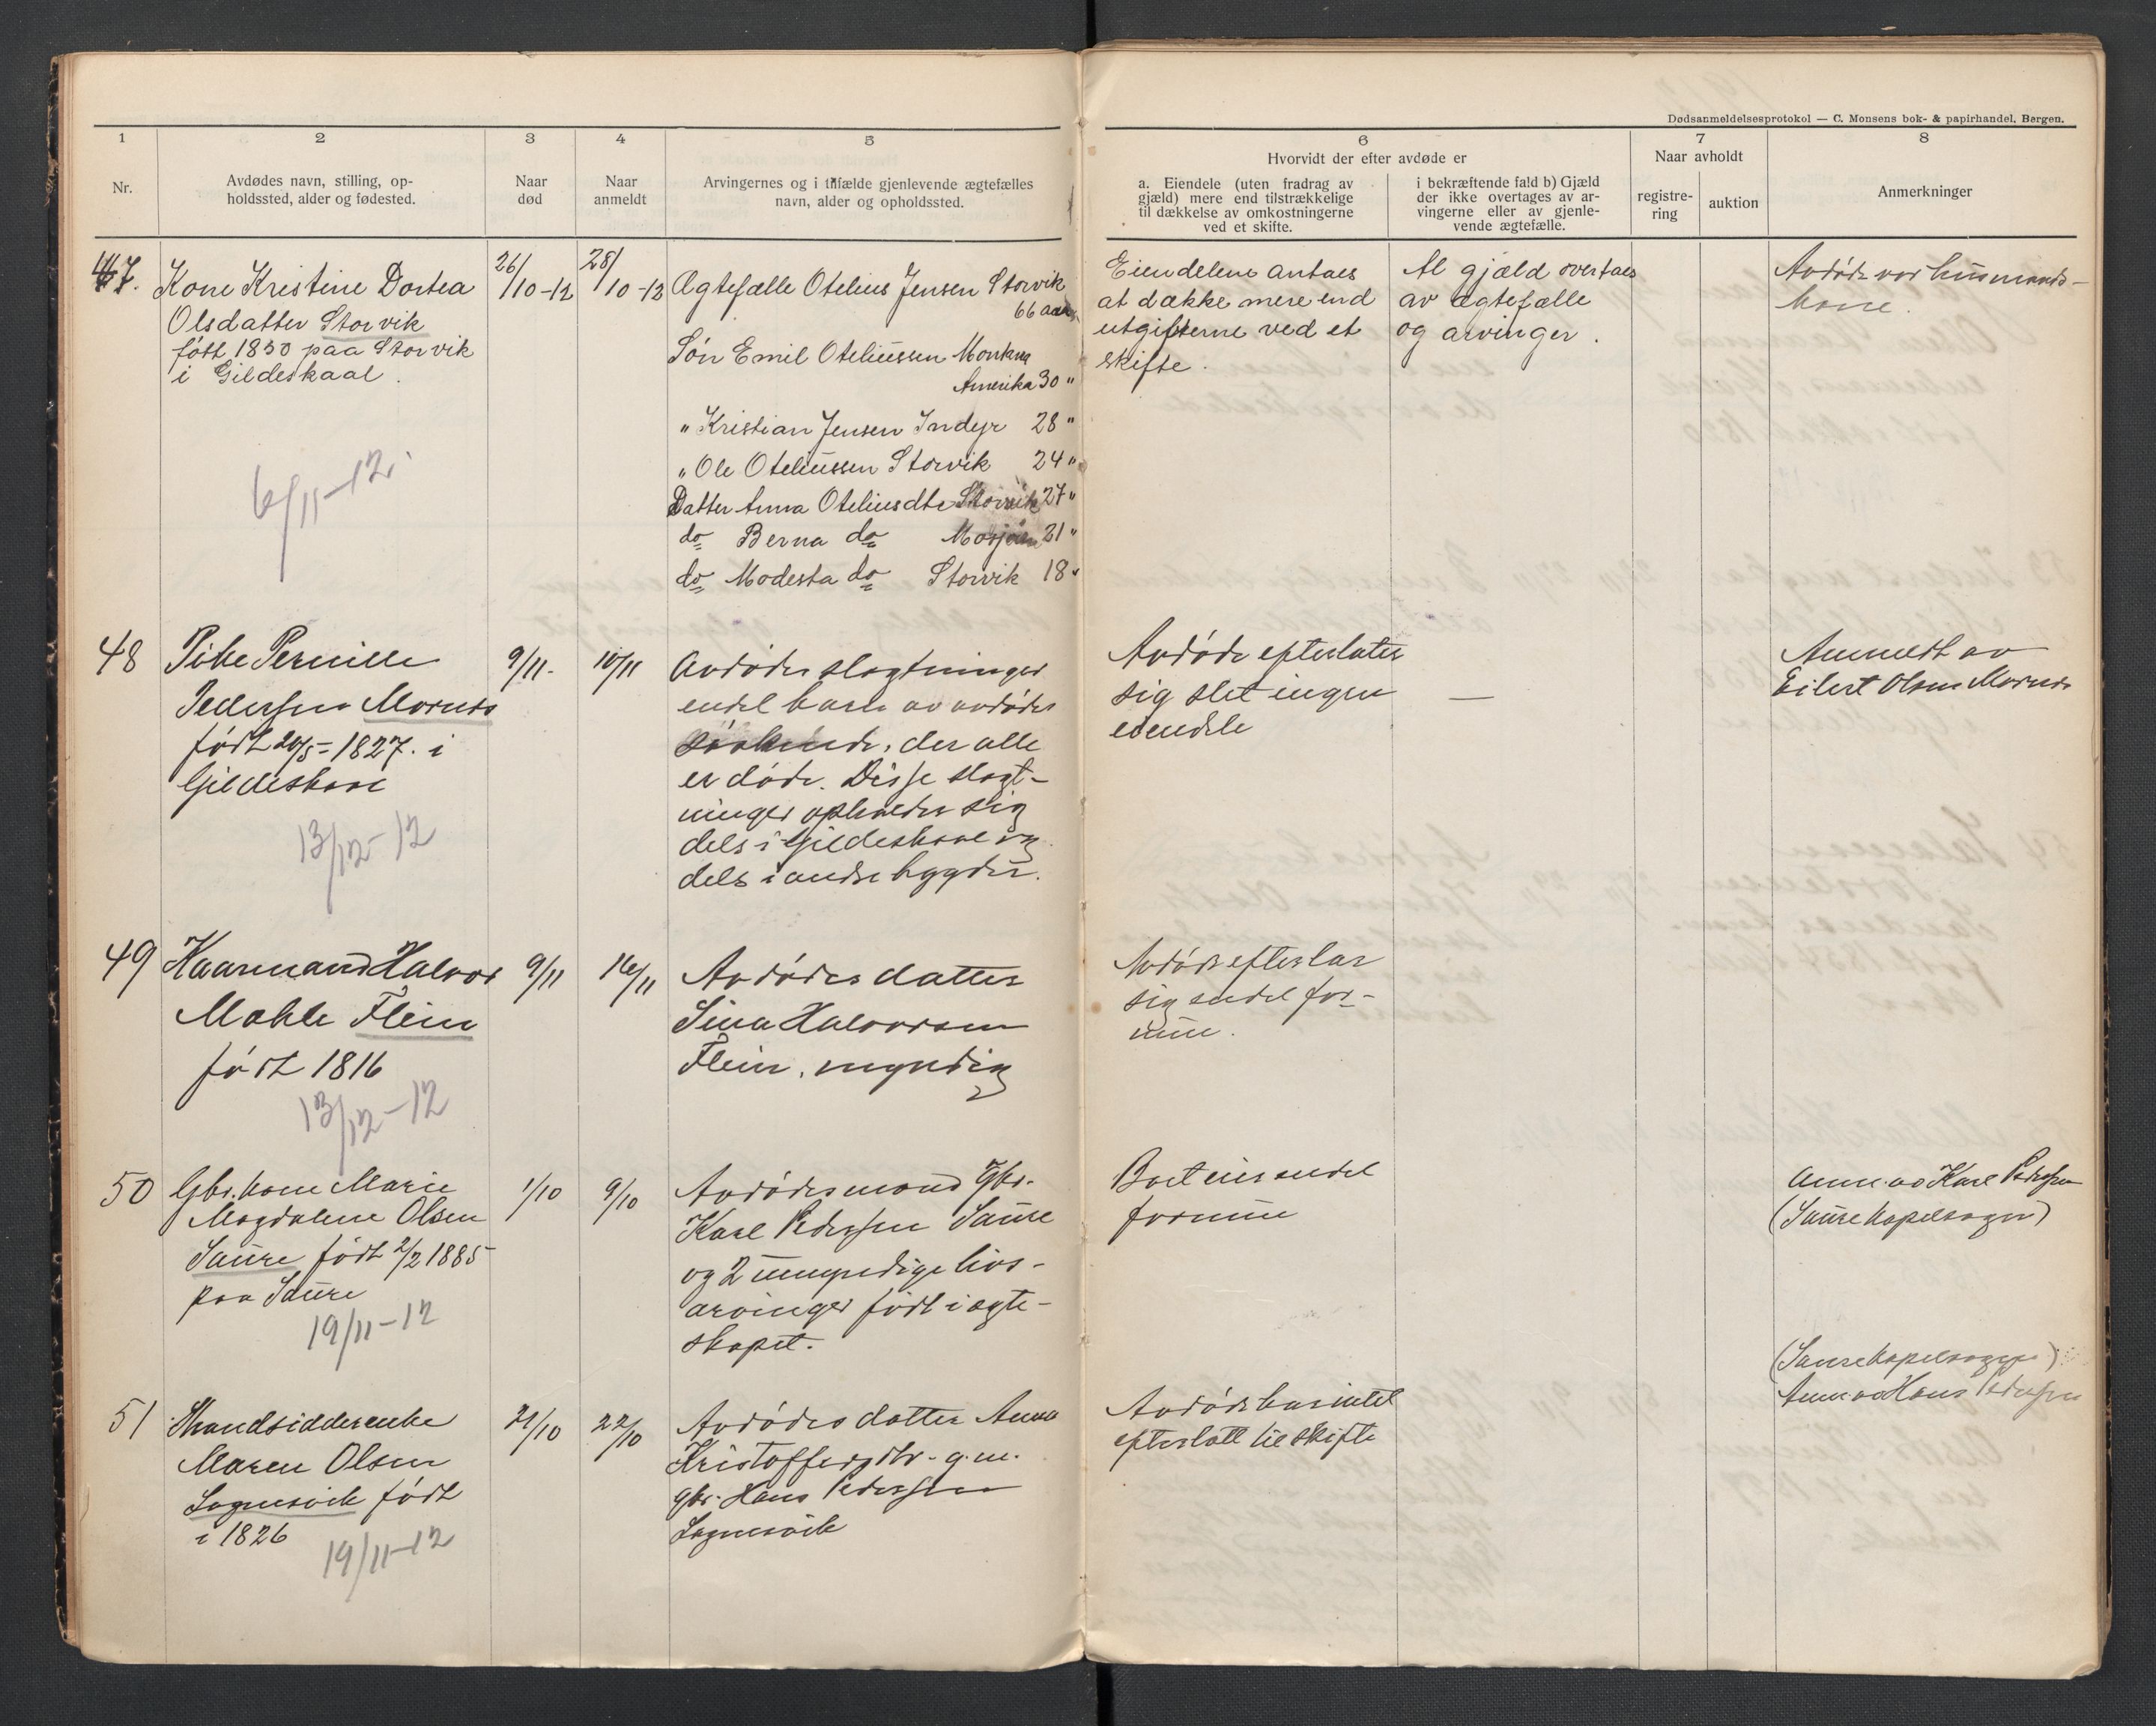 Dødsanmeldelsesprotokol — C. Monsens bok- & papirhandel, Bergen.
1 2 3 4 5 6 7 8
Nr.
Avdødes navn, stilling, op-
holdssted, alder og fødested.
Naar
død
Naar
anmeldt
Arvingernes og i tilfælde gjenlevende ægtefælles
navn, alder og opholdssted.
Hvorvidt der efter avdøde er
a. Eiendele (uten fradrag av
gjæld) mere end tilstrækkelige
til dækkelse av omkostningerne
ved et skifte.
i bekræftende fald b) Gjæld
der ikke overtages av ar-
vingerne eller av gjenle-
vende ægtefælle.
Naar avholdt
registre-
ring
auktion
Anmerkninger
47.
Kone Kristine Dortea
Olsdatter Storvik
født 1850 paa Storvik
i Gildeskaal.
6/11-12
26/10-12
28/10-12
Ægtefælle Otelius Jensen Storvik
66 aar
Søn Emil Oteliussen Montana
Amerika 30 "
" Kristian Jensen Indyr 28 "
" Ole Oteliussen Storvik 24 "
Datter Anna Oteliusdtr Storvik 27 "
do Berna do Mosjøen 21 "
do Modesta do Storvik 18 "
Eiendelene antaes
at dække mere end
utgifterne ved et
skifte.
Al gjæld overtaes
av ægtefælle
og arvinger.
Avdøde var husmands-
kone.
48
Pike Pernille
Pedersen Mornes
født 20/5-1827. i
Gildeskaal
13/12-12
9/11.
10/11
Avdødes slegtninger
endel barn av avdødes
søskende, der alle
er døde. Disse slegt-
ninger opholder sig
dels i Gildeskaal og
dels i andre bygder.
Avdøde efterlater
sig slet ingen
eiendele
—
Anmeldt av
Eilert Olsen Mornes
49
Kaarmand Halvor
Mohle Flein
født 1816
13/12-12
9/11
16/11
Avdødes datter
Sina Halvorsen
Flein, myndig
Avdøde efterlar
sig endel for-
mue.
50
Gbr. kone Marie
Magdalene Olsen
Saure født 2/2 1885
paa Saure
19/11-12
1/10
9/10
Avdødes mand Gbr.
Karl Pedersen Saure
og 2 umyndige livs-
arvinger født i egte-
skapet.
Boet eier endel
formue
Anm. av Karl Pedersen
(Saure kapelsogn)
51
Strandsidderenke
Maren Olsen
Sognesvik født
i 1826
19/11-12
21/10
22/10
Avdødes datter Anna
Kristoffersdtr. g.m.
gbr. Hans Pedersen
Sognesvik
Avdøde har intet
efterlatt til skifte
(Saure kapelsogn)
Anm. av Hans Pedersen